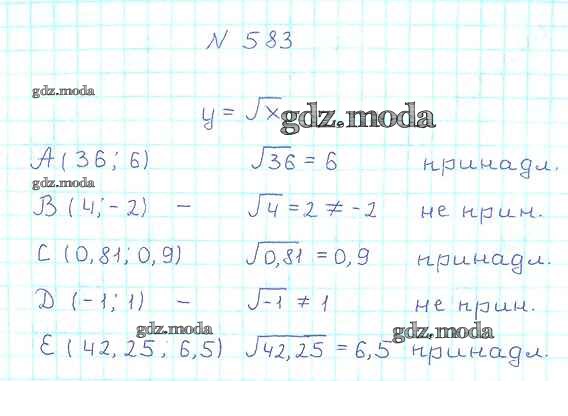 N 583
gdz.moda
y = √x gdz.moda
A (36; 6) √36 = 6 принадл.
gdz.moda
B (4; -2) - √4 = 2 ≠ -2 не прин.
C (0,81; 0,9) √0,81 = 0,9 принадл.
D (-1; 1) - √-1 ≠ 1 не прин.
gdz.moda gdz.moda
E (42,25; 6,5) √42,25 = 6,5 принадл.